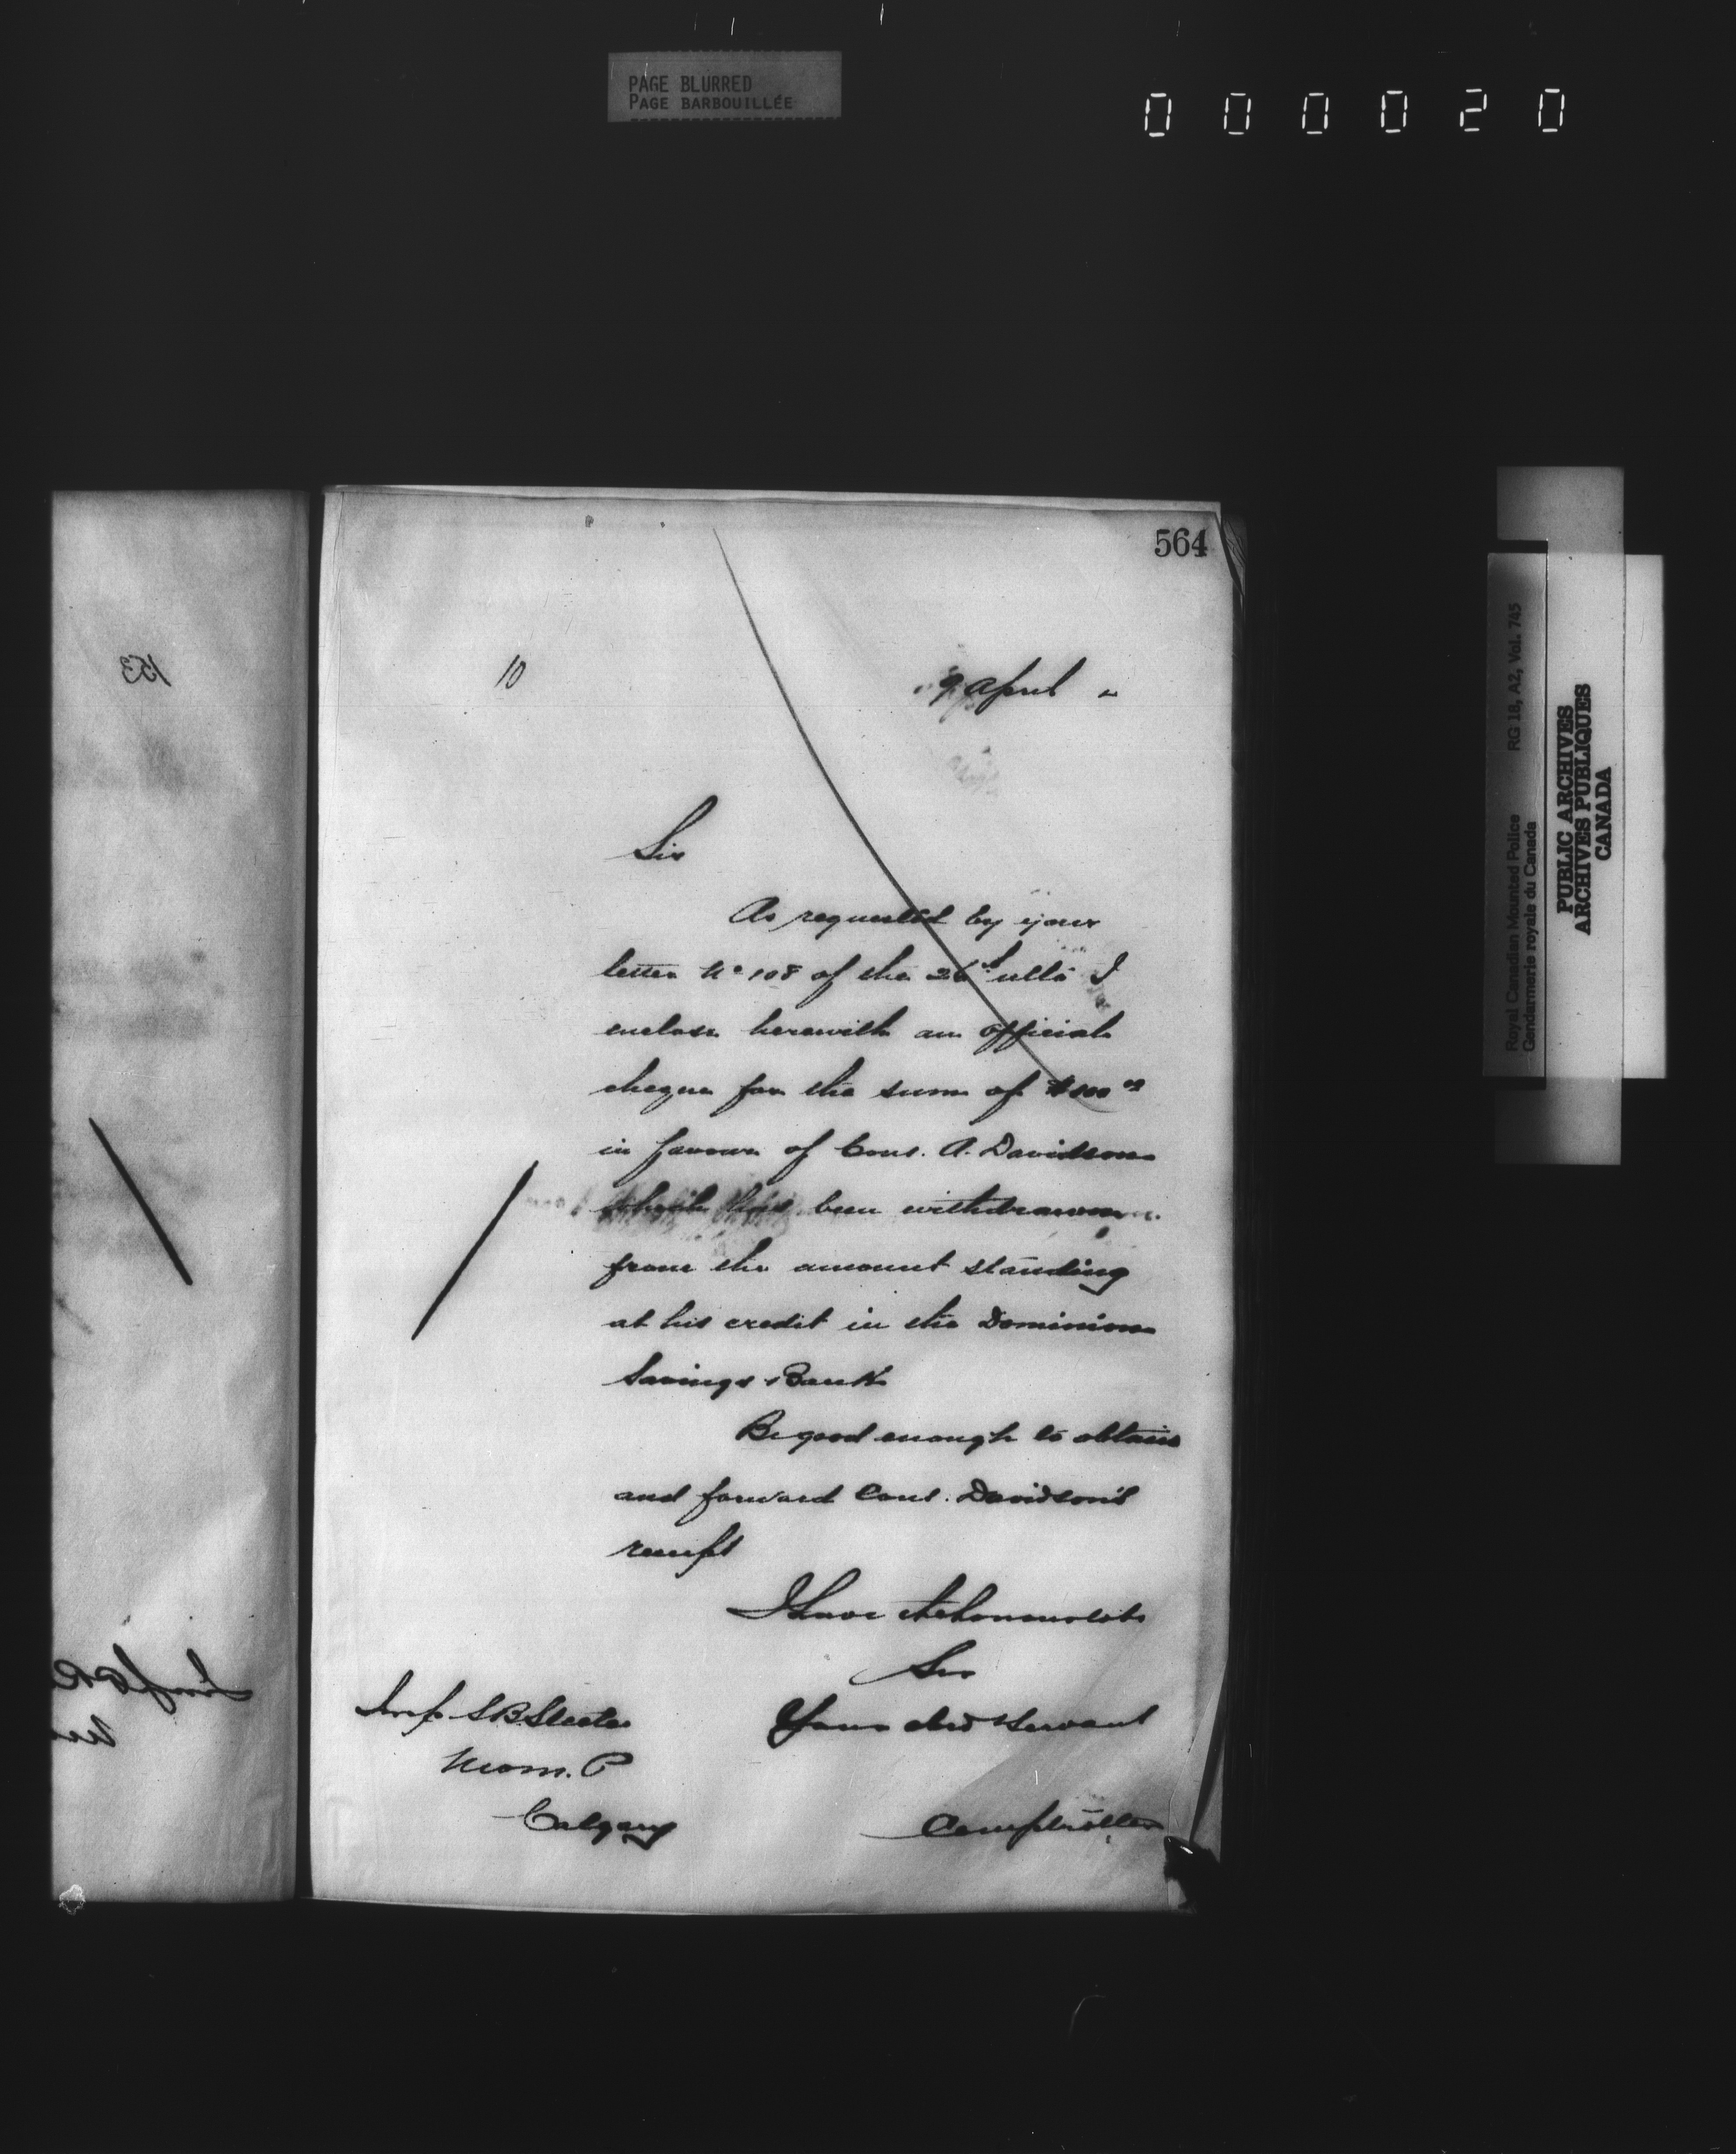 PAGE BLURRED
PAGE BARBOUILLÉE
000020
564
10
9 April "
Sir
As requested by your
letter No 108 of the 26th ulto I
enclose herewith an official
cheque for the sum of $100 00
in favour of Cons. A. Davidson
which has been withdrawn
from the amount standing
at his credit in the Dominion
Savings Bank
Be good enough to obtain
and forward Cons. Davidson's
receipt
I have the honour to be
Sir
Your obed Servant
Comptroller
Insp S B Steele
N.W.M.P
Calgary
153
Royal Canadian Mounted Police RG 18, A2, Vol. 745
Gendarmerie royale du Canada
PUBLIC ARCHIVES
ARCHIVES PUBLIQUES
CANADA